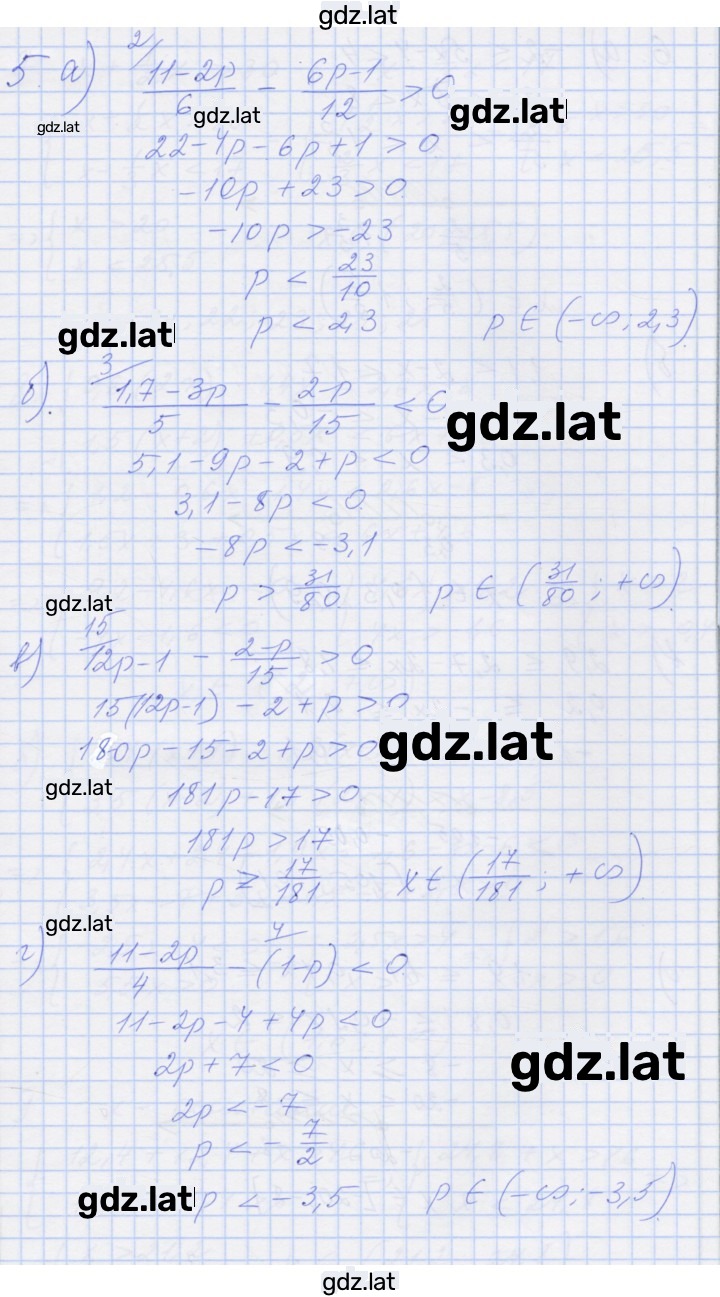 gdz.lat
5 а) 2/ (11-2p)/6 - (6p-1)/12 > 0
gdz.lat gdz.lat gdz.lat
22-4p-6p+1>0
-10p+23>0
-10p>-23
p < 23/10
p < 2,3 p ∈ (-∞; 2,3).
gdz.lat
б). 3/ (1,7-3p)/5 - (2-p)/15 < 0
gdz.lat
5,1-9p-2+p<0
3,1-8p<0
-8p<-3,1
p > 31/80 p ∈ (31/80; +∞).
gdz.lat
в) 15/ 12p-1 - (2-p)/15 > 0
15(12p-1)-2+p>0
gdz.lat
180p-15-2+p>0
gdz.lat
181p-17>0
181p>17
p > 17/181 x ∈ (17/181; +∞).
gdz.lat
г) (11-2p)/4 - 4/ (1-p) < 0
11-2p-4+4p<0
2p+7<0
gdz.lat
2p<-7
p < -7/2
gdz.lat p < -3,5 p ∈ (-∞; -3,5).
gdz.lat